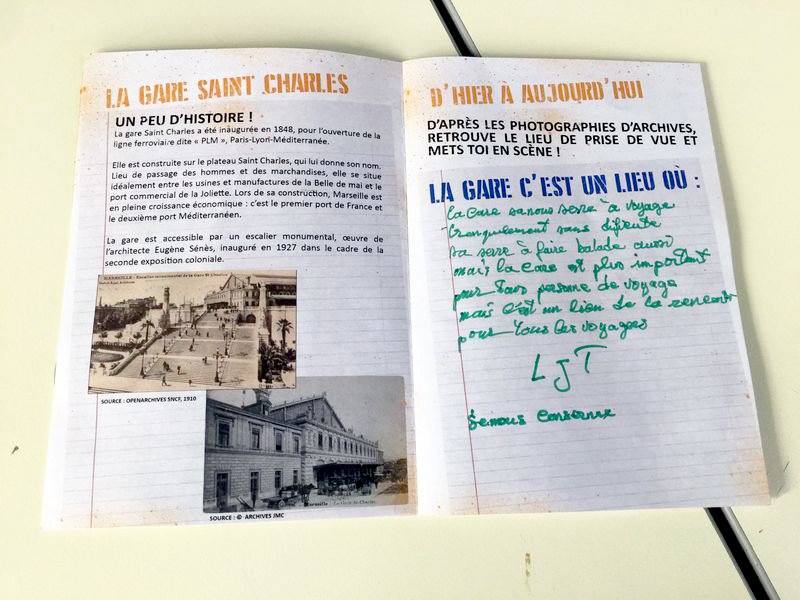 LA GARE SAINT CHARLES
UN PEU D'HISTOIRE !
La gare Saint Charles a été inaugurée en 1848, pour l'ouverture de la
ligne ferroviaire dite « PLM », Paris-Lyon-Méditerranée.
Elle est construite sur le plateau Saint Charles, qui lui donne son nom.
Lieu de passage des hommes et des marchandises, elle se situe
idéalement entre les usines et manufactures de la Belle de mai et le
port commercial de la Joliette. Lors de sa construction, Marseille est
en pleine croissance économique : c'est le premier port de France et
le deuxième port Méditerranéen.
La gare est accessible par un escalier monumental, œuvre de
l'architecte Eugène Sénès, inauguré en 1927 dans le cadre de la
seconde exposition coloniale.
MARSEILLE - Escalier monumental de la Gare St-Charles
SOURCE : OPENARCHIVES SNCF, 1910
Marseille - La Gare St-Charles
SOURCE : © ARCHIVES JMC
D'HIER À AUJOURD'HUI
D'APRÈS LES PHOTOGRAPHIES D'ARCHIVES,
RETROUVE LE LIEU DE PRISE DE VUE ET
METS TOI EN SCÈNE !
LA GARE C'EST UN LIEU OÙ :
la Gare sa nous serre à voyage
tranquilement sans
sa serre à faire balade aussi
mais la Gare et plus important
pour tous personne de voyage
mais c'est un lieu de la
pour tous les voyages
LJT